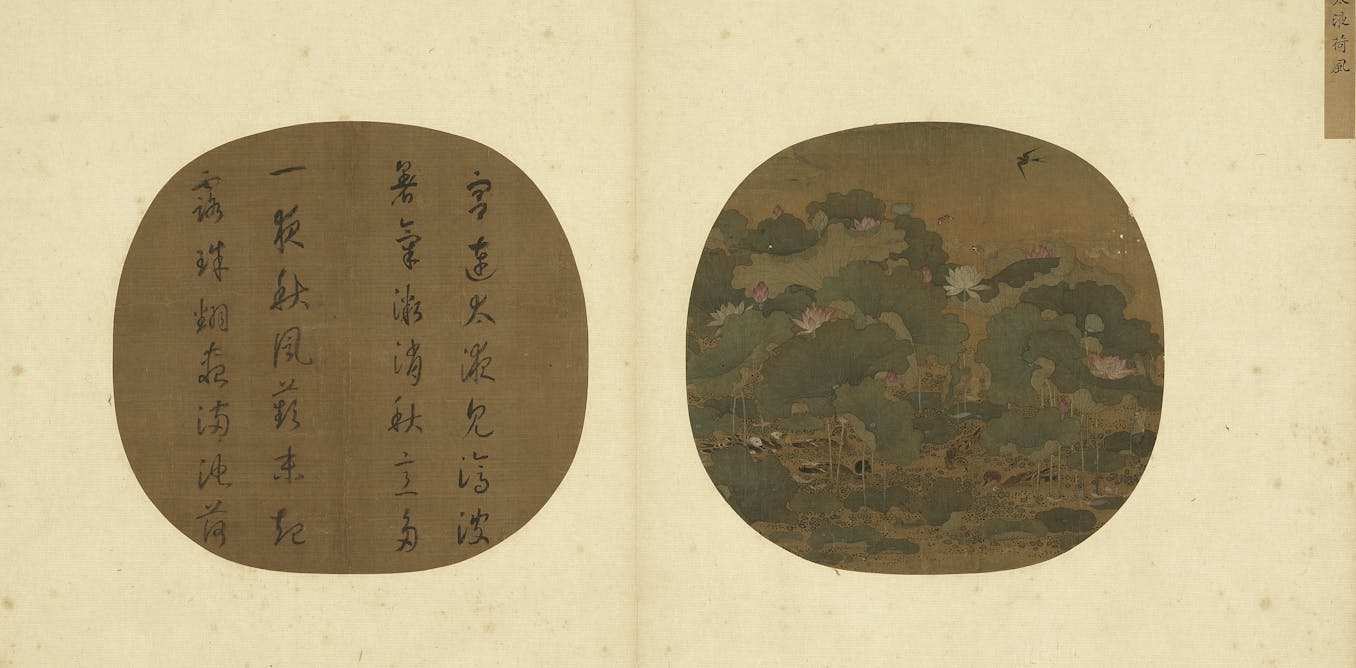 太液荷風
宮連太液見滄波
暑氣微消秋意多
一夜秋風蘋末起
露珠翻盡滿池荷